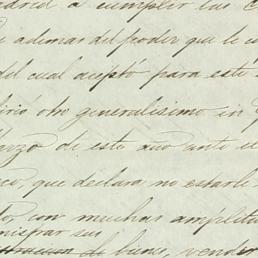 a cumplir las
ademas del poder que le
del cual aceptó para este
otro generalisimo in
Marzo de este año ante el
que declara no estarle
con muchas amplitu
nistrar sus
bienes, vender